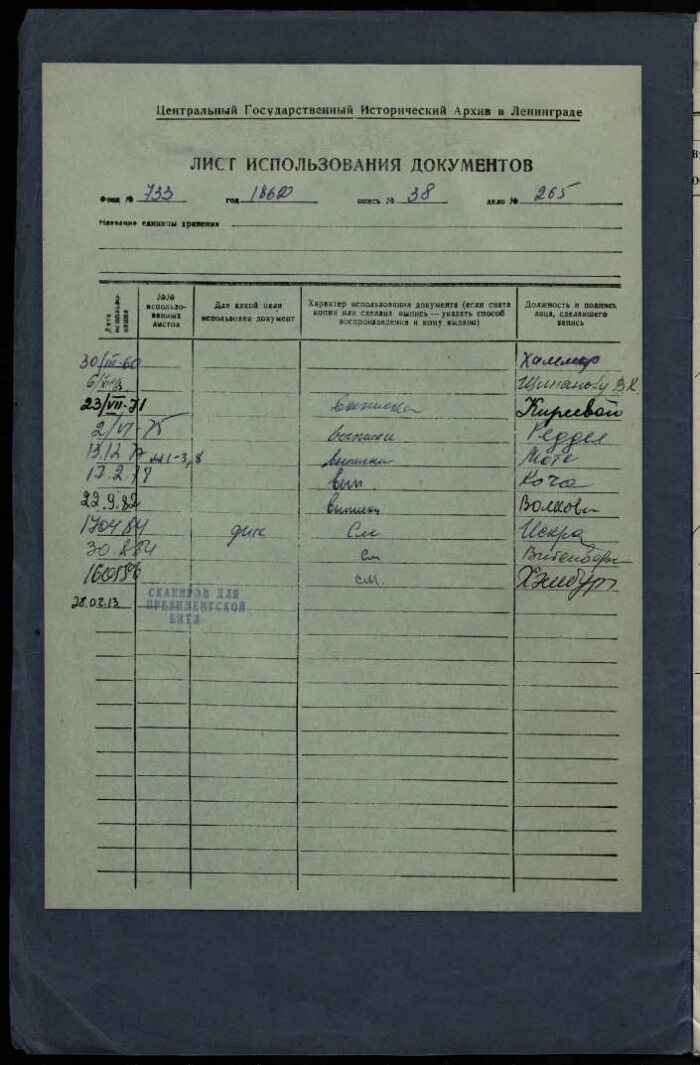 Центральный Государственный Исторический Архив в Ленинграде
ЛИСТ ИСПОЛЬЗОВАНИЯ ДОКУМЕНТОВ
Фонд № 733 год 1860 опись № 38 дело № 265
Название единицы хранения
Дата использования
№№ использованных листов
Для какой цели использован документ
Характер использования документа (если снята копия или сделана выпись — указать способ воспроизведения и кому выдано)
Должность и подпись лица, сделавшего запись
30/III-60 Хаммер
23/VII-71 выписка Киреевой
2/VI-75 выписки Реддел
13.12 выписки
17.2.78 вып. Коча
22.9.82 выписки Волкова
170484 дисс См Искра
30.8.84 см Витенберг
см.
28.02.13 СКАНИРОВ ДЛЯ
ПРЕЗИДЕНТСКОЙ
БИБЛ